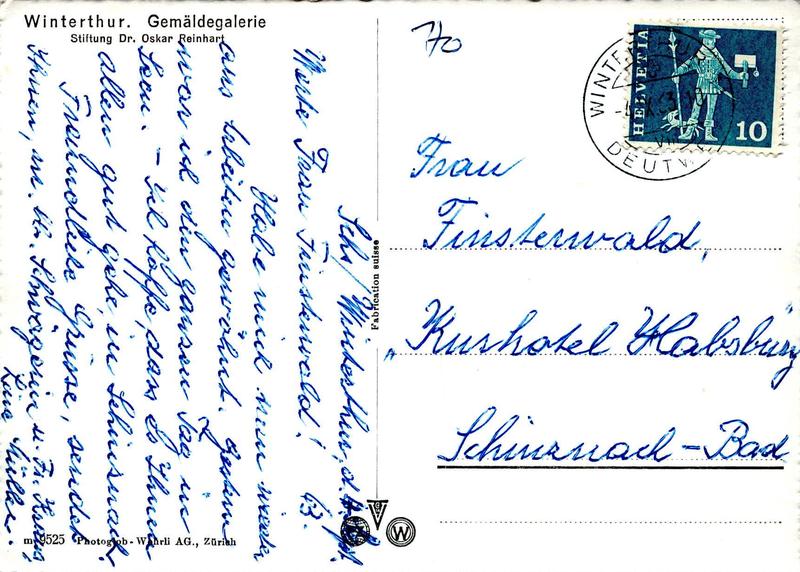 Winterthur. Gemäldegalerie
Stiftung Dr. Oskar Reinhart
70
HELVETIA
10
WINTERTHUR
DEUTW
Frau
Finsterwald,
"Kurhotel Habsburg
Schinznach-Bad
Fabrication suisse
W
Winterthur, d.
63.
Werte Frau Finsterwald!
Habe mich nun wieder
ans Arbeiten gewöhnt. Gestern
war ich den ganzen Tag in
Seen. - Ich hoffe, dass es Ihnen
allen gut gehe, in Schinznach.
Freundliche Grüsse, sendet
Ihnen, u. Schwägerin u. Fr.
Lina Müller.
9525 Photoglob-Wehrli AG., Zürich